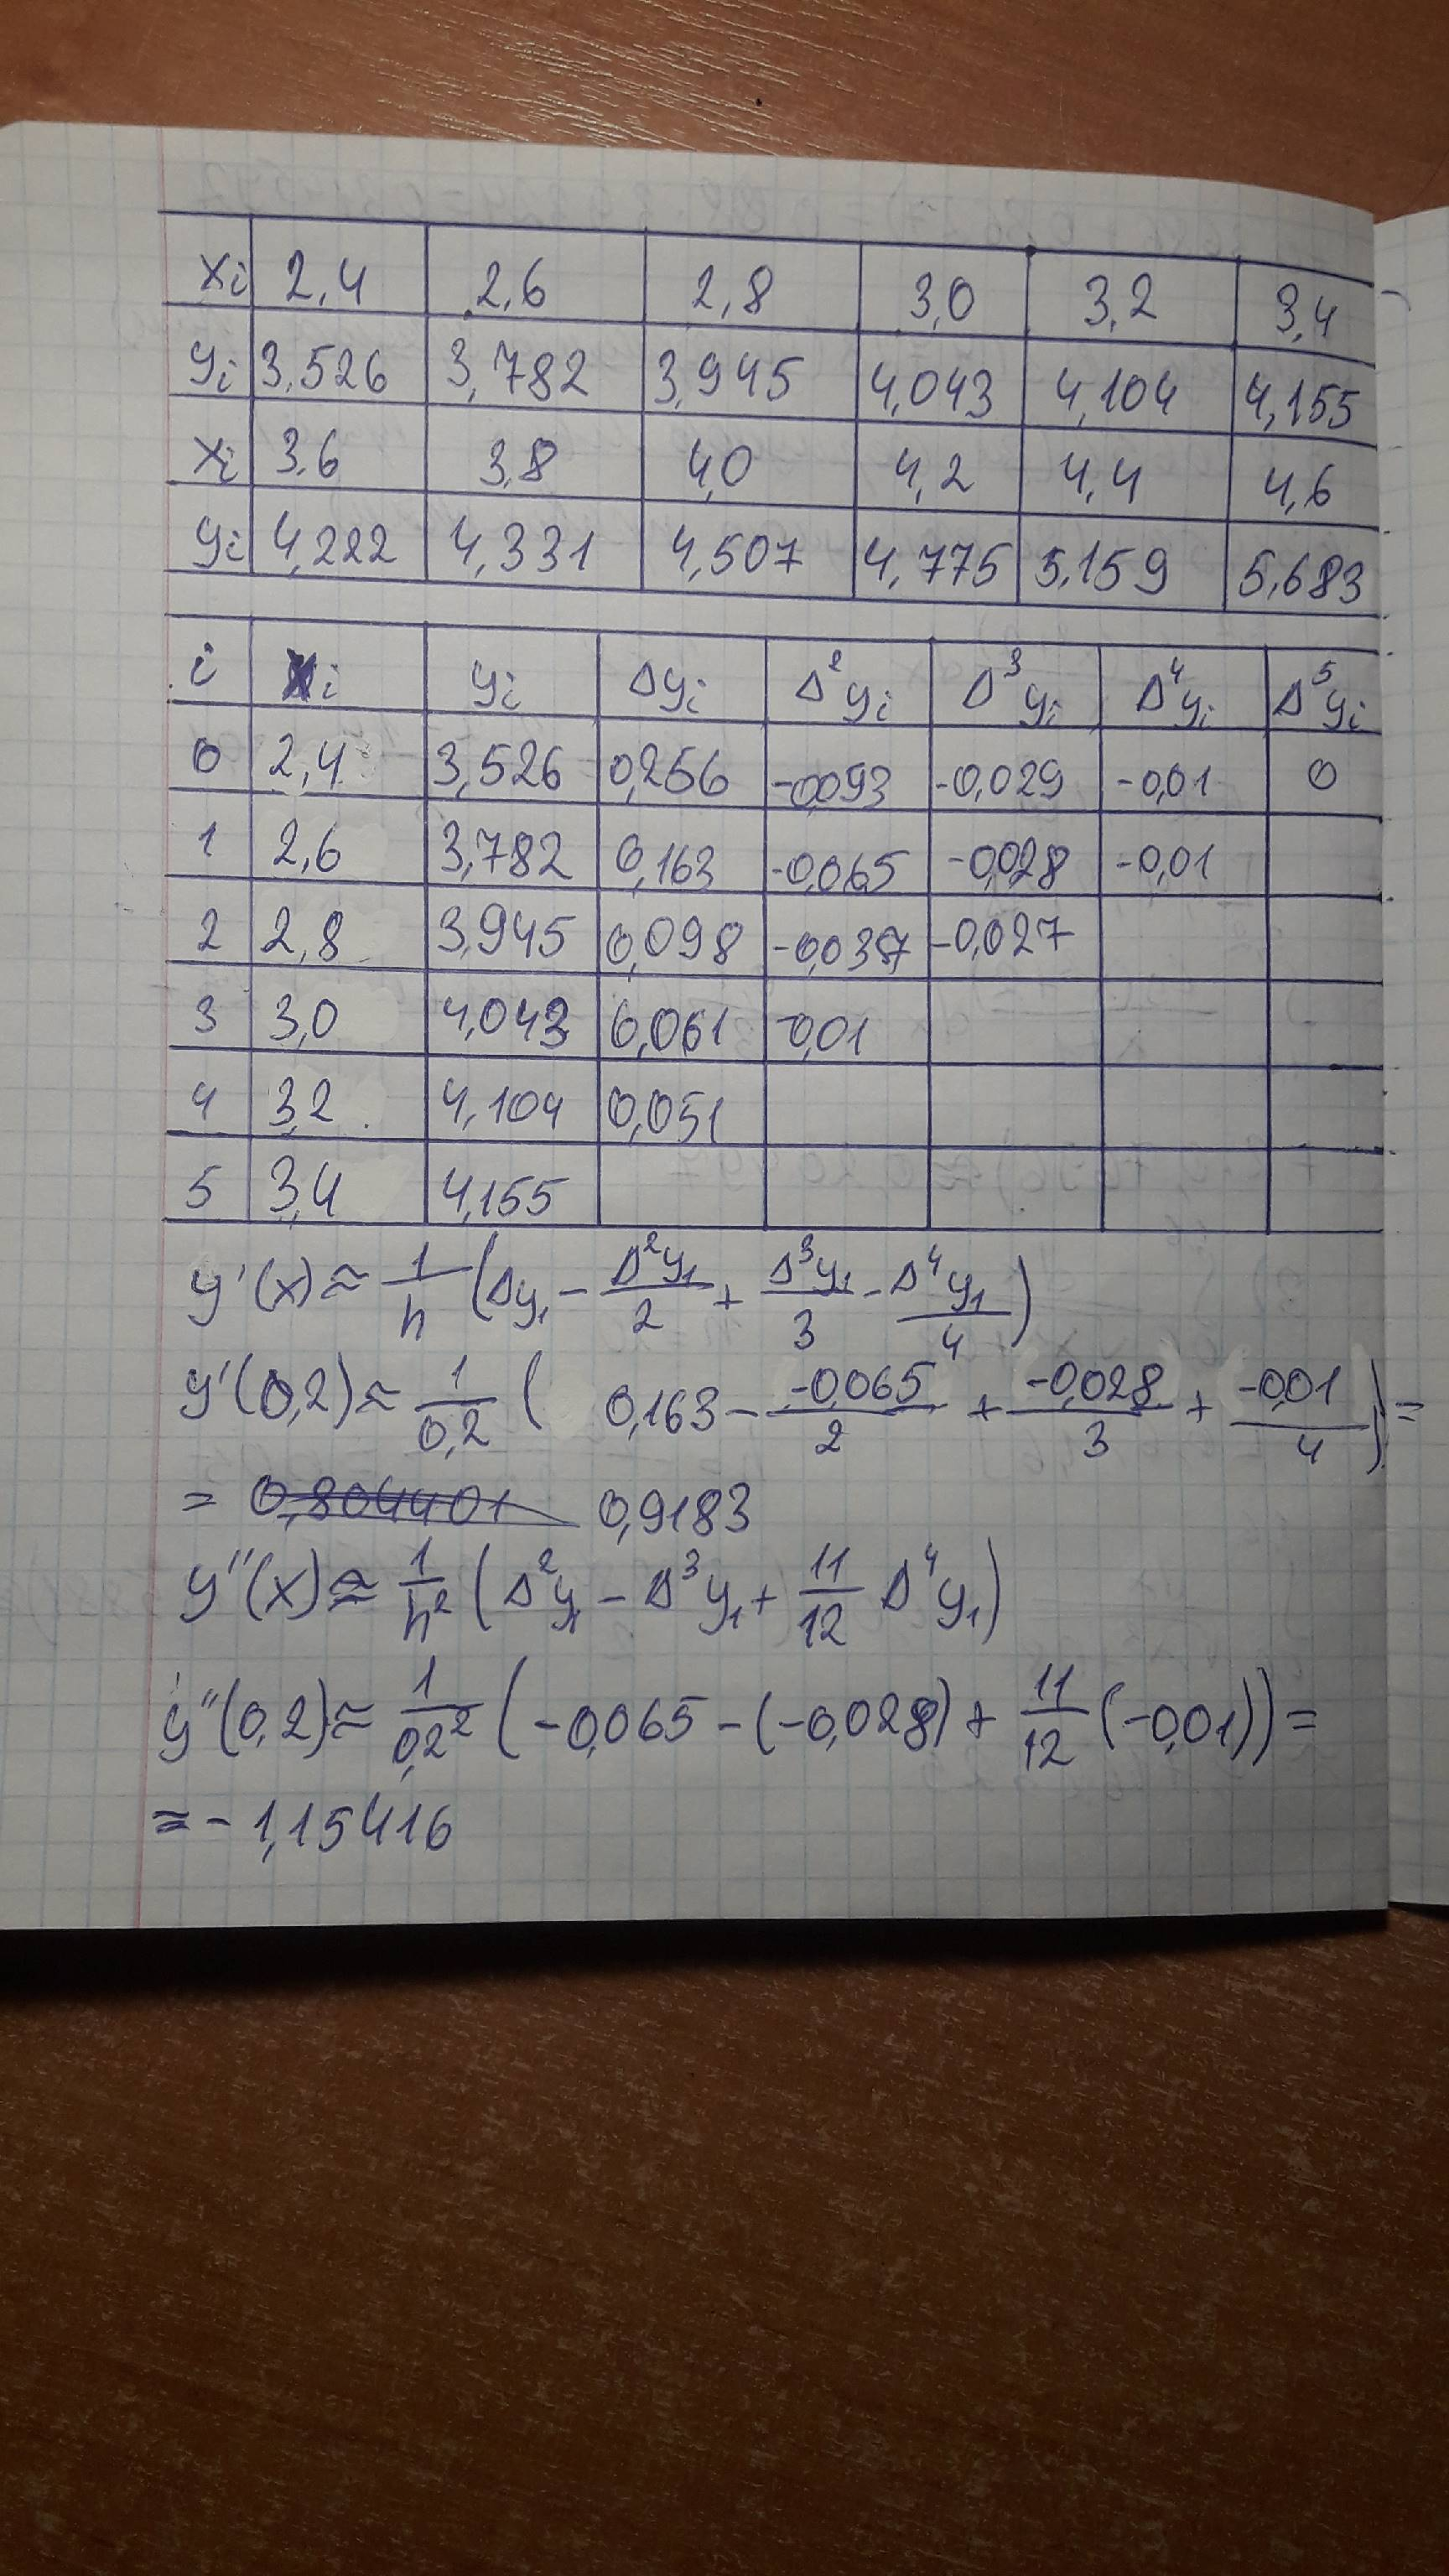 xi 2,4 2,6 2,8 3,0 3,2 3,4
yi 3,526 3,782 3,945 4,043 4,104 4,155
xi 3,6 3,8 4,0 4,2 4,4 4,6
yi 4,222 4,331 4,507 4,775 5,159 5,683
i xi yi Δyi Δ²yi Δ³yi Δ⁴yi Δ⁵yi
0 2,4 3,526 0,256 -0,093 -0,029 -0,01 0
1 2,6 3,782 0,163 -0,065 -0,028 -0,01
2 2,8 3,945 0,098 -0,037 -0,027
3 3,0 4,043 0,061 -0,01
4 3,2 4,104 0,051
5 3,4 4,155
y'(x) ≈ 1/h (Δy₁ - Δ²y₁/2 + Δ³y₁/3 - Δ⁴y₁/4)
y'(0,2) ≈ 1/0,2 ( 0,163 - -0,065/2 + -0,028/3 + -0,01/4) =
= 0,804401 0,9183
y''(x) ≈ 1/h² (Δ²y₁ - Δ³y₁ + 11/12 Δ⁴y₁)
y''(0,2) ≈ 1/0,2² (-0,065 - (-0,028) + 11/12 (-0,01)) =
= - 1,15416